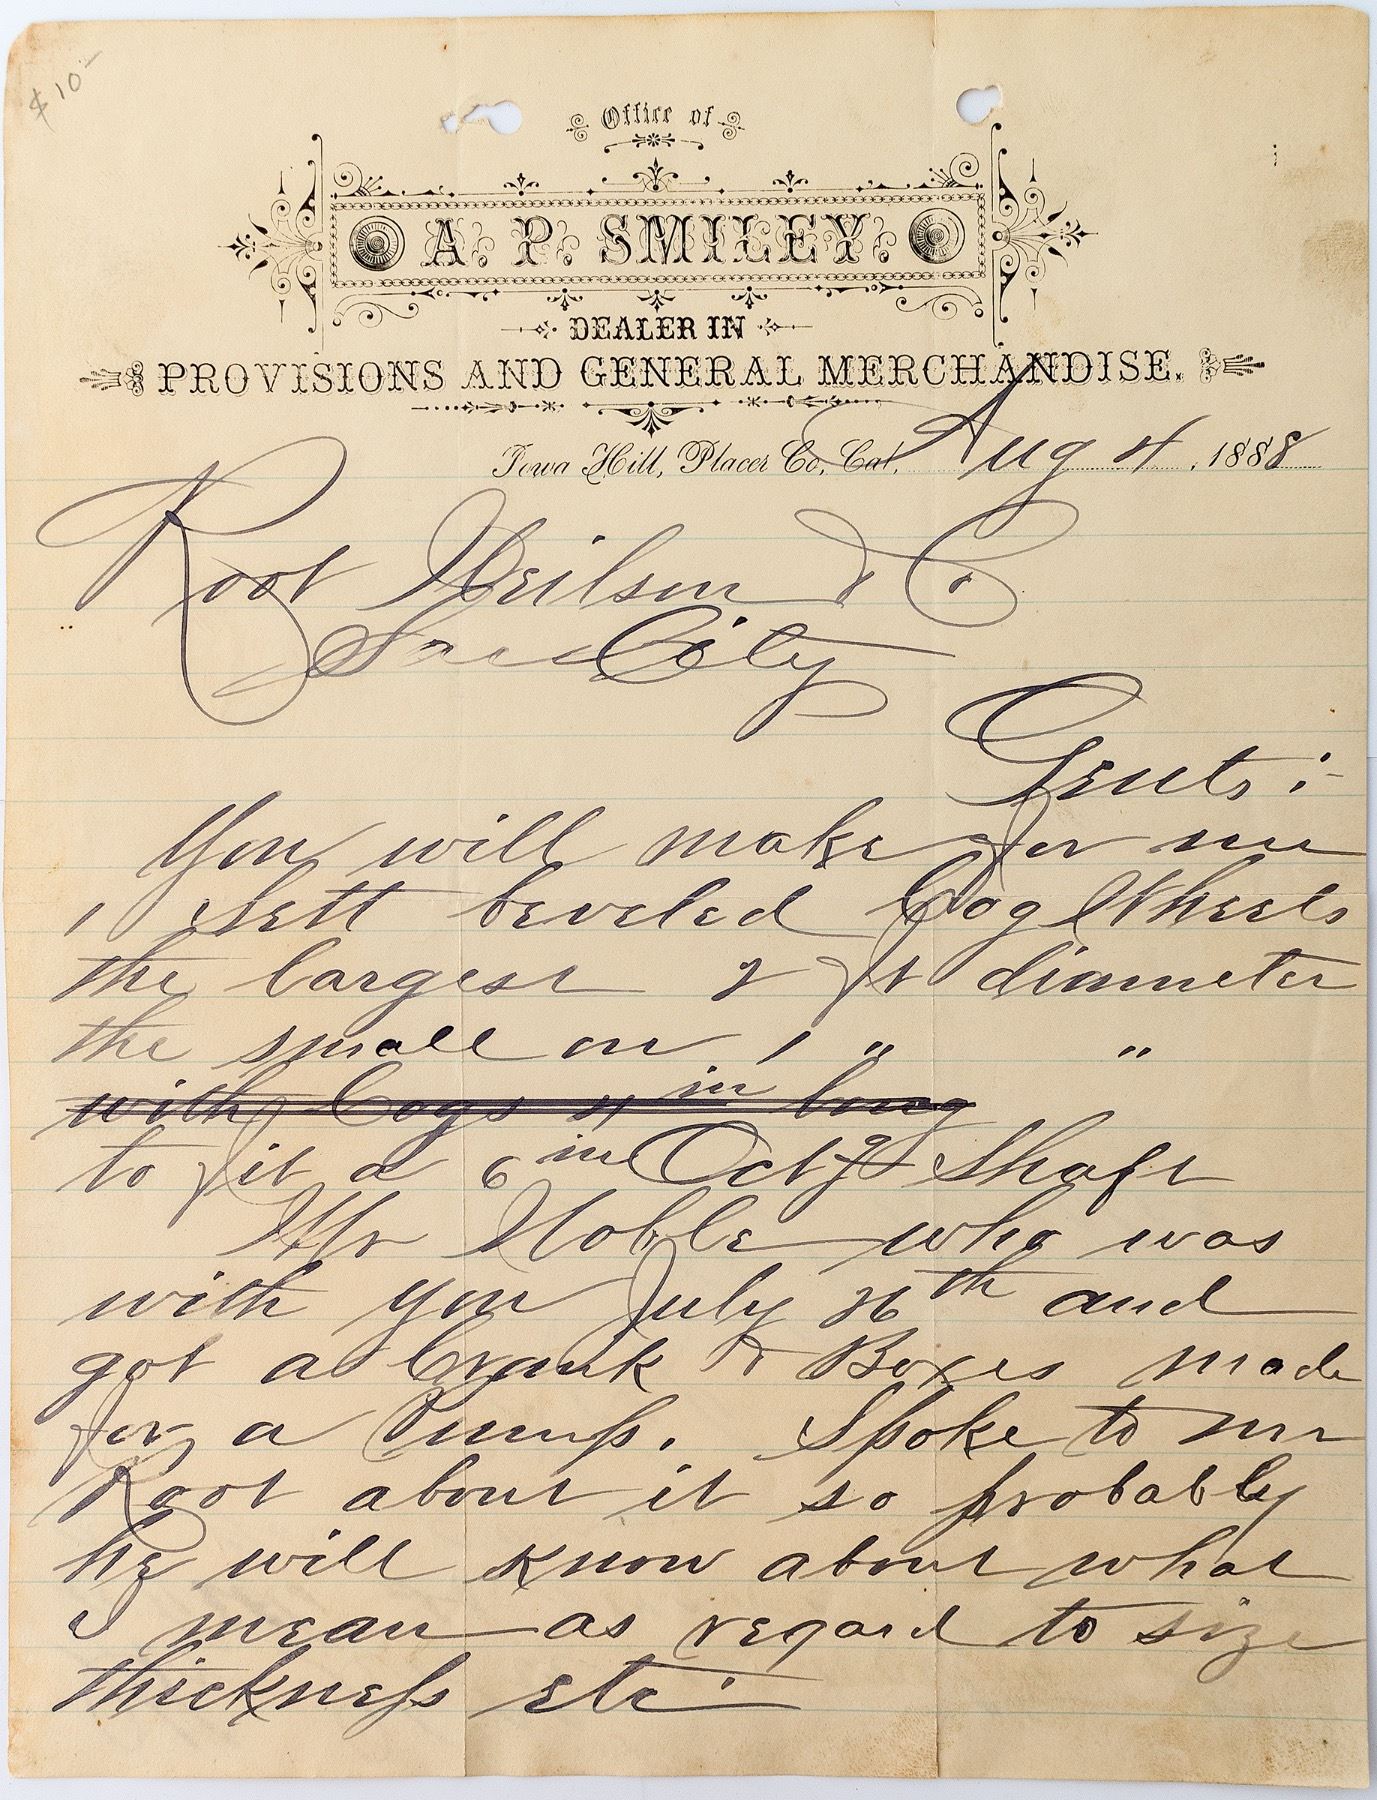 $10-
Office of
A. P. SMILEY.
DEALER IN
PROVISIONS AND GENERAL MERCHANDISE.
Iowa Hill, Placer Co., Cal, Aug 4, 1888
Root Neilson & Co
Sac City
Gents:-
You will make for me
1 Sett beveled Cog Wheels
the largest 2 ft diameter
the small one 1 " "
with Cogs 4 in long
to fit a 6 in Octg Shaft
Mr Noble who was
with you July 26th and
got a Crank & Boxes made
for a Pump. Spoke to Mr
Root about it so probably
he will know about what
I mean as regard to size
thickness etc.